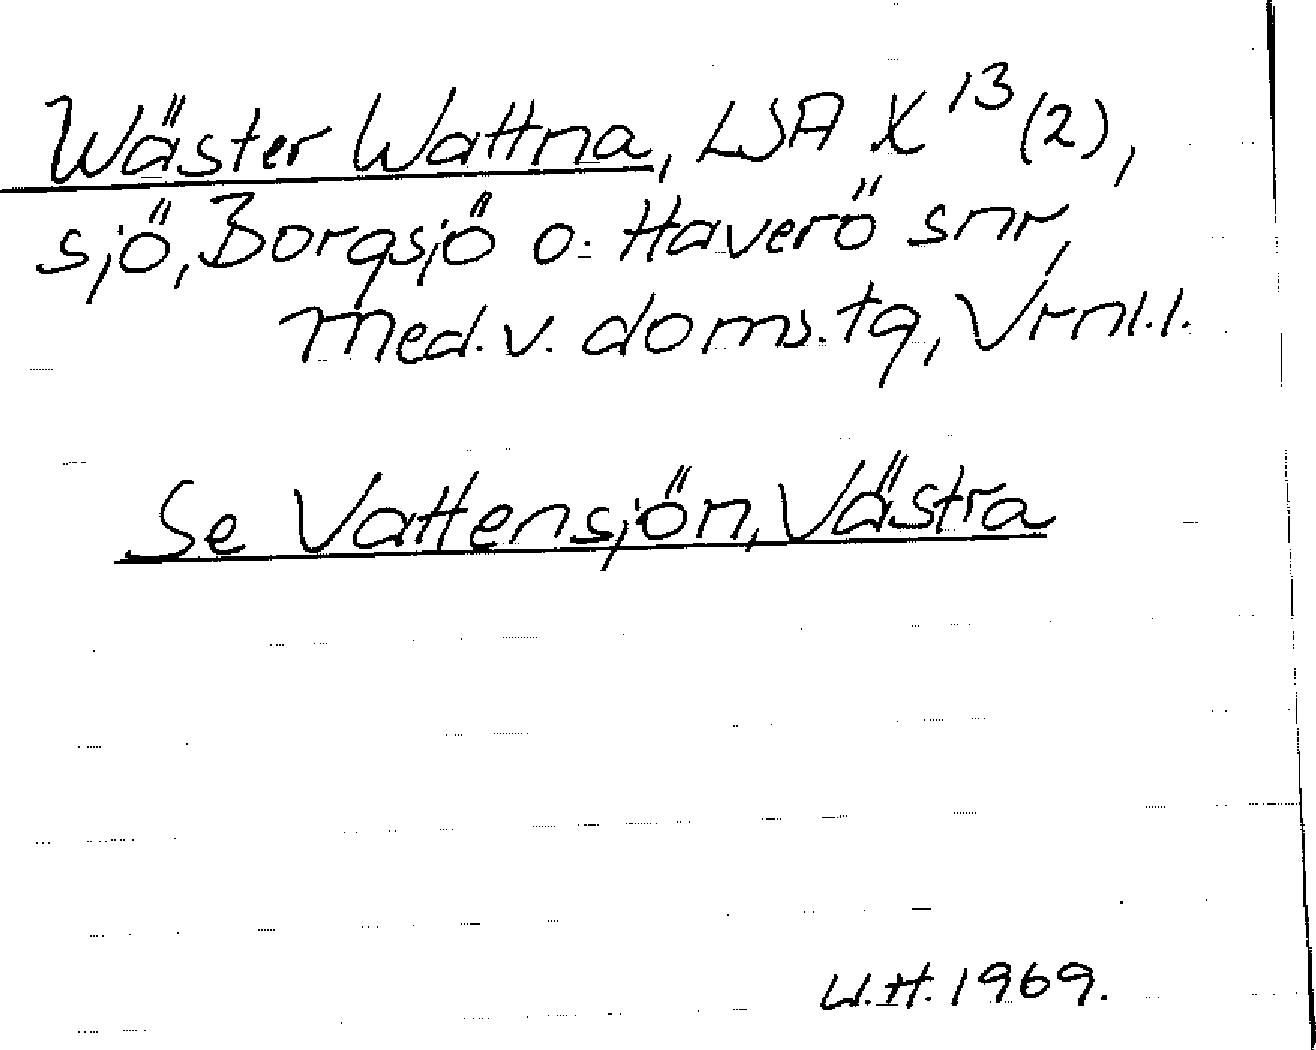 Wäster Wattna, LSA X 13 (2),
sjö, Borgsjö o. Haverö snr,
Med. v. doms. tg, Vrnl. l.
Se Vattensjön, Västra
W.H. 1969.